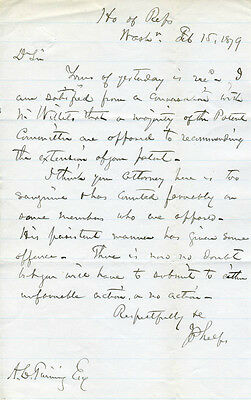 Ho of Reps
Washn Feb 15, 1879
D Sir
Yours of yesterday is recd. I am
satisfied from a conversation with
Mr Willits, that a majority of the Patent
Committee are opposed to recommending
the extension of your patent.
I think your Attorney here is too
sanguine & has counted favorably on
some members who are opposed.
His persistent manner has given some
offence. There is now no doubt
but you will have to submit to either
unfavorable action, or no action.
Respectfully &c
Phelps
A. C. Esq